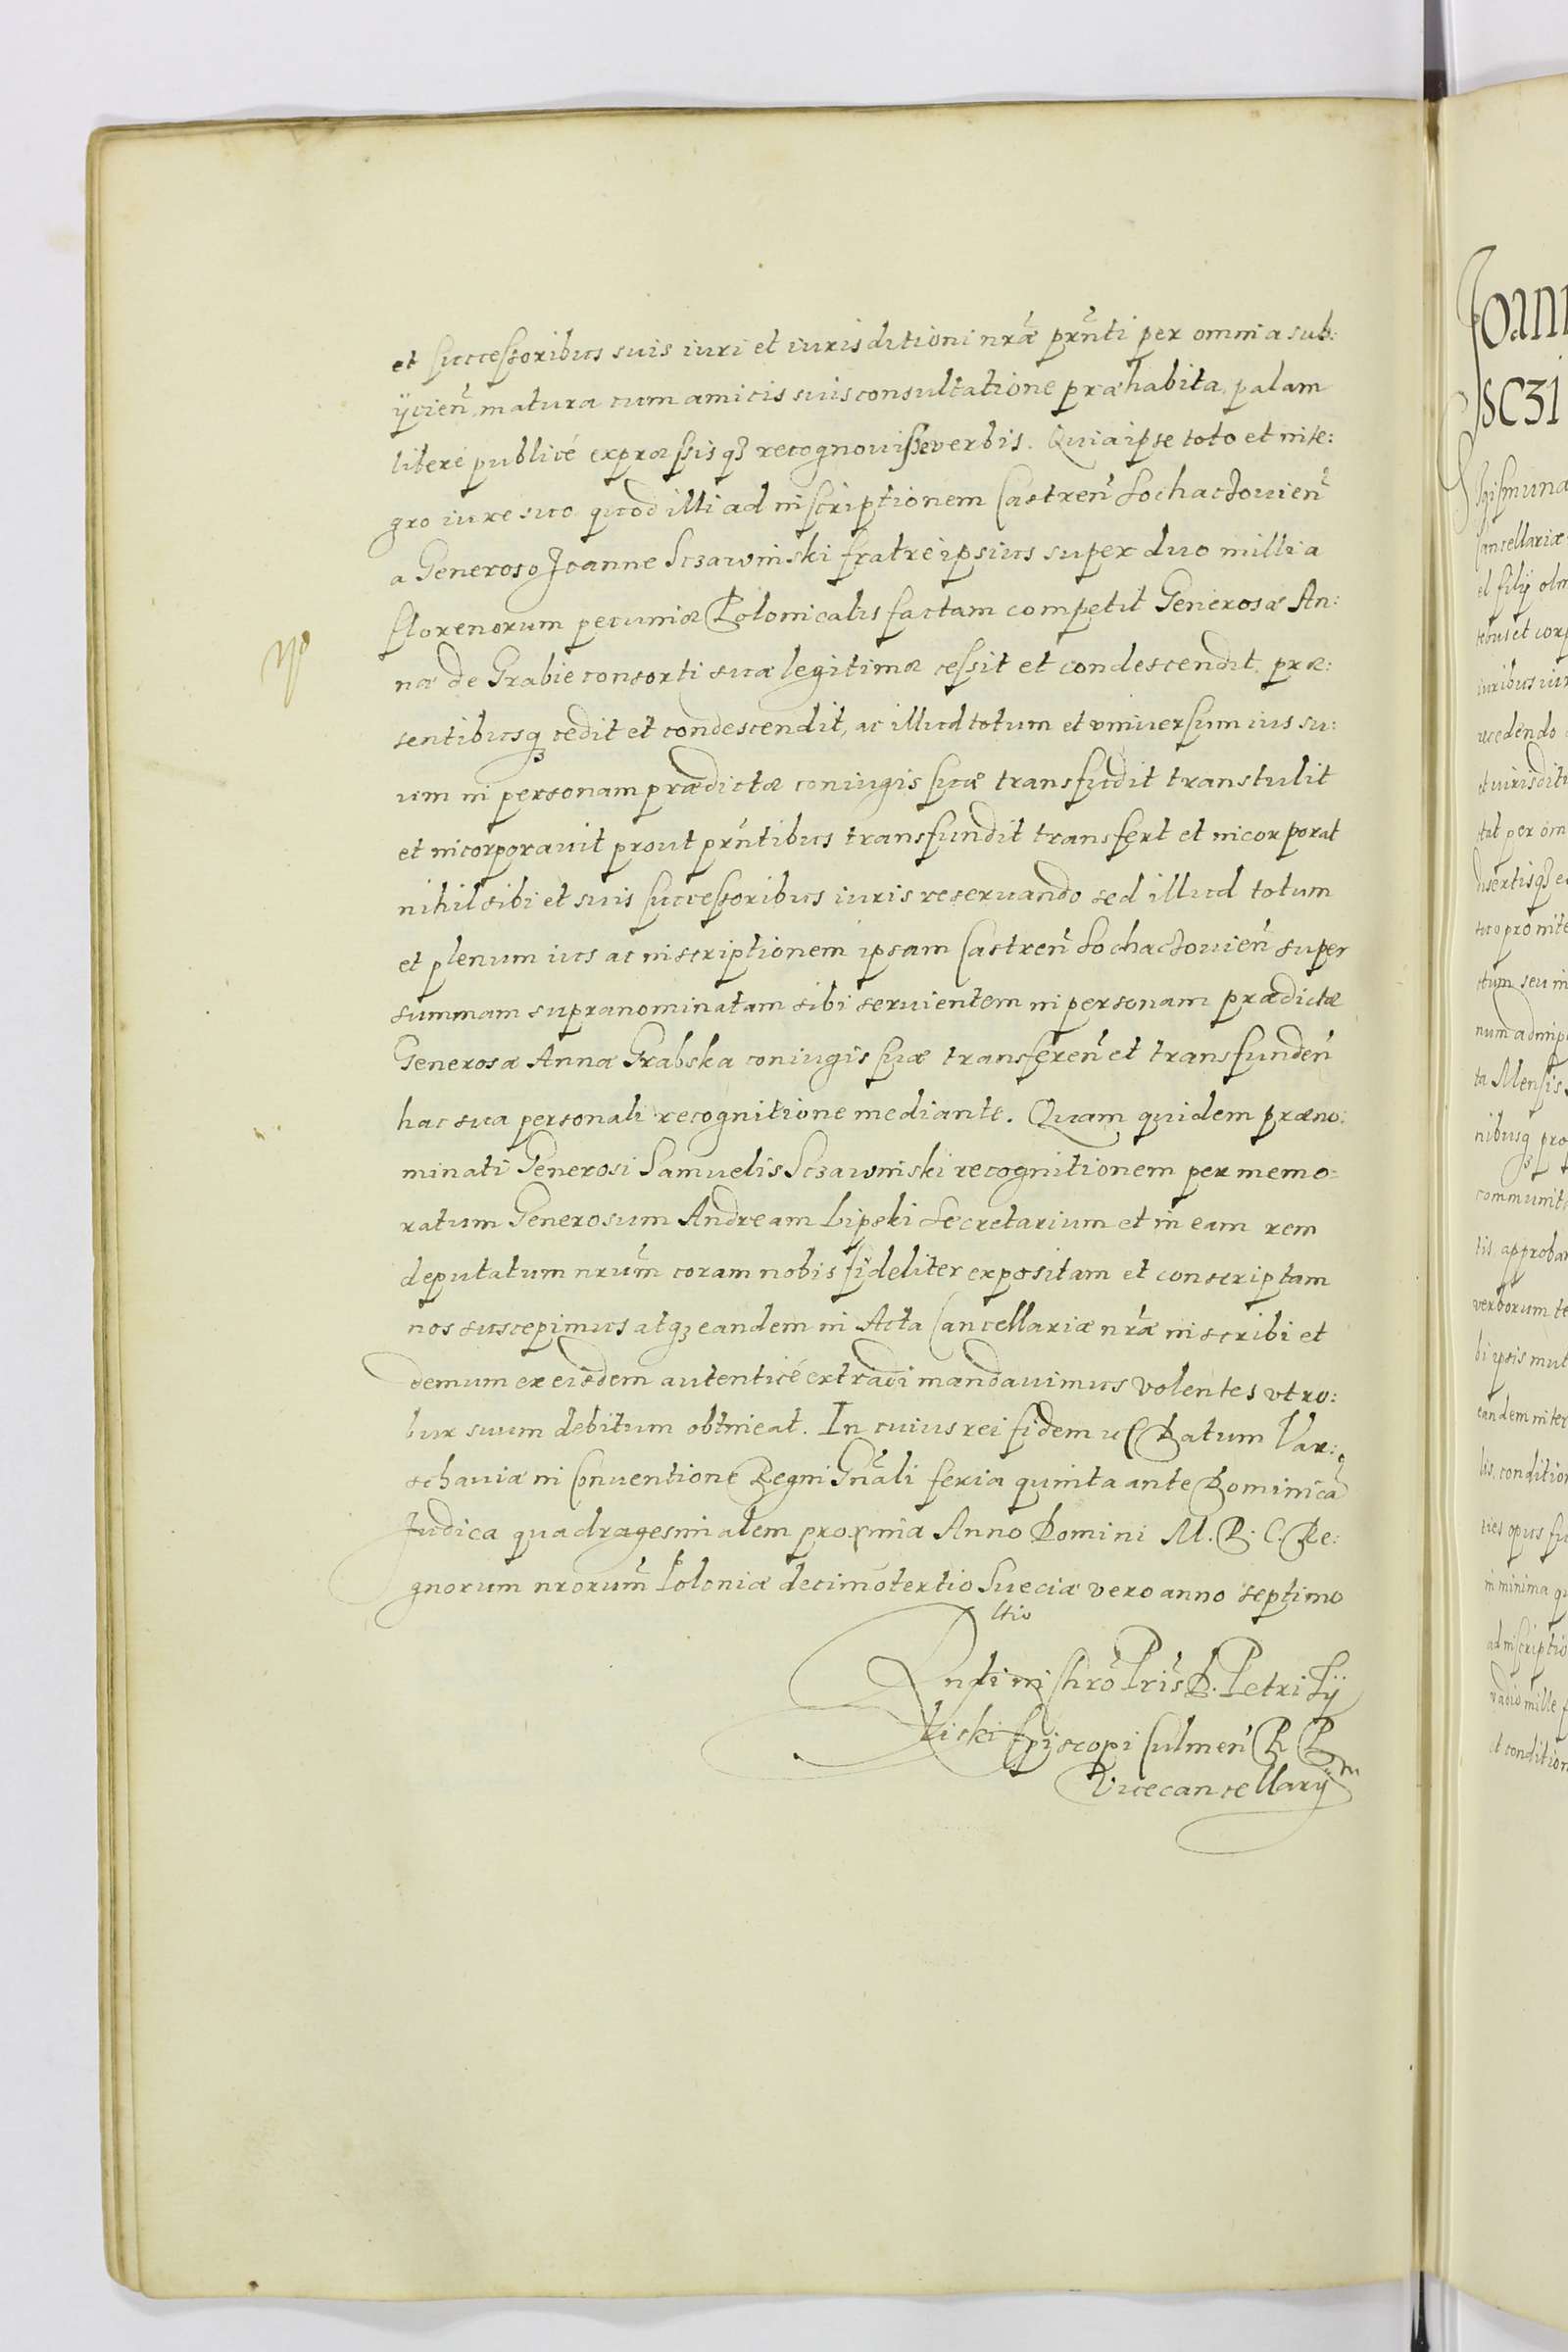 et successoribus suis iuri et iurisditioni nrae prnti per omnia sub:
ÿcien matura cum amicis suis consultatione praehabita palam
libere publicé expraessisqȝ recognouisse verbis. Quia ipse toto et inte:
gro iure suo quod illi ad inscriptionem Castren Sochaczouien
a Generoso Joanne Sczawinski fratre ipsius super duo millia
florenorum pecuniae Polonicalis factam competit Generosae An:
nae de Grabie consorti suae legitimae cessit et condescendit prae:
sentibusqȝ cedit et condescendit, ac illud totum et vniuersum ius su:
um in personam praedictae coniugis suae transfudit transtulit
et incorporauit prout prntibus transfundit transfert et incorporat
nihil sibi et suis successoribus iuris reseruando sed illud totum
et plenum ius ac inscriptionem ipsam Castren Sochaczouien super
summam supranominatam sibi seruientem in personam praedictae
Generosae Annae Grabska coniugis suae transferen et transfunden
hac sua personali recognitione mediante. Quam quidem praeno:
minati Generosi Samuelis Sczawinski recognitionem per memo=
ratum Generosum Andream Lipski Secretarium et in eam rem
deputatum nrum coram nobis fideliter expositam et conscriptam
nos suscepimus atqȝ eandem in Acta Cancellariae nrae inscribi et
demum ex eisdem autenticé extradi mandauimus volentes vt ro:
bur suum debitum obtineat. In cuius rei fidem Datum Var:
schauiae in Conuentione Regni Gnali feria quinta ante Dominica
Judica quadragesimalem proxima Anno Domini M.D.C. Re:
gnorum nrorum Poloniae decimotertio Sueciae vero anno septimo
ltio
Rndi in Chro Pris D. Petri Tÿ
licki Episcopi Culmen R P
Vicecancellarÿ
Joann
SCZI
Sigismund
Cancellariae
et filÿ olim
tebus et corp
iuribus iur
recedendo
et iurisditi
tat per om
disertisqȝ e
toto pro inte
ctum seu in
num ad
ta Mensis
nibusqȝ pro
communit
tis approbar
verborum te
bi ipsis mut
eandem inter
lis condition
ties opus fu
in minima qu
ad inscriptio
vadio mille f
et condition